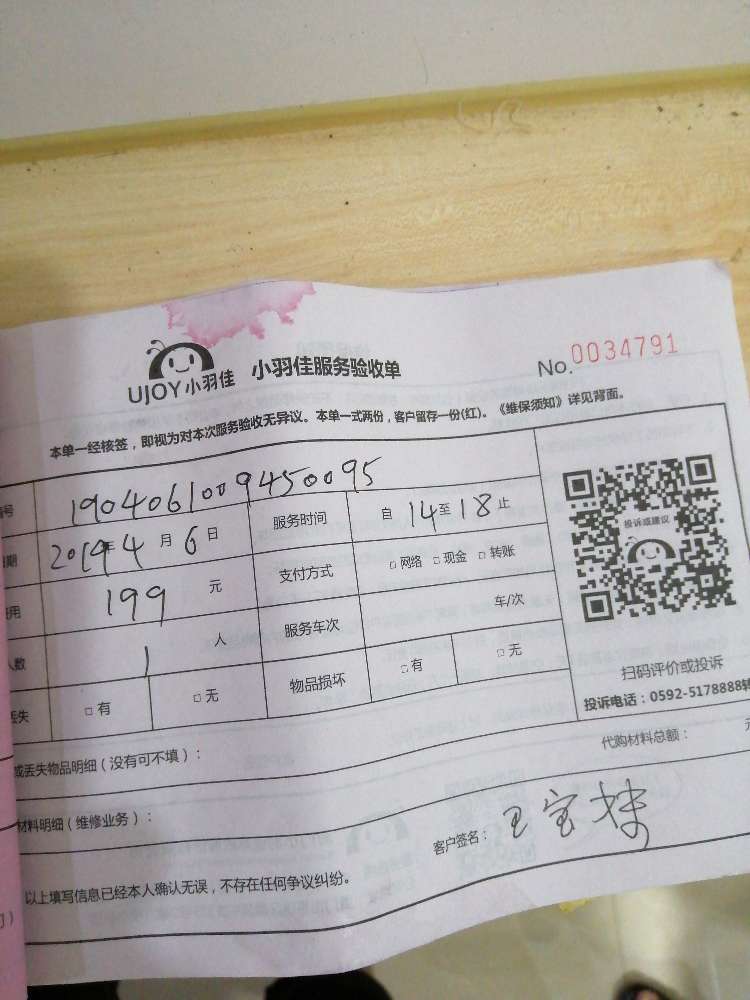 UJOY小羽佳 小羽佳服务验收单 No.0034791
本单一经核签，即视为对本次服务验收无异议。本单一式两份，客户留存一份(红)。《维保须知》详见背面。
号 1904061009450095 服务时间 自14至18止
期 2019年4月6日 支付方式 □网络 □现金 □转账
用 199 元 服务车次 车/次
人数 1 人 物品损坏 □有 □无
丢失 □有 □无
投诉或建议
扫码评价或投诉
投诉电话：0592-5178888转
或丢失物品明细（没有可不填）：
代购材料总额： 元
材料明细（维修业务）：
客户签名：王宝
以上填写信息已经本人确认无误，不存在任何争议纠纷。